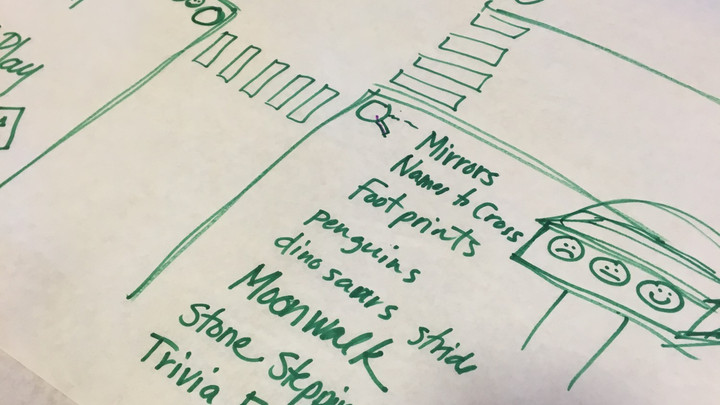 Play
Mirrors
Names to Cross
Footprints
penguins
dinosaurs stride
Moonwalk
Stone
Trivia